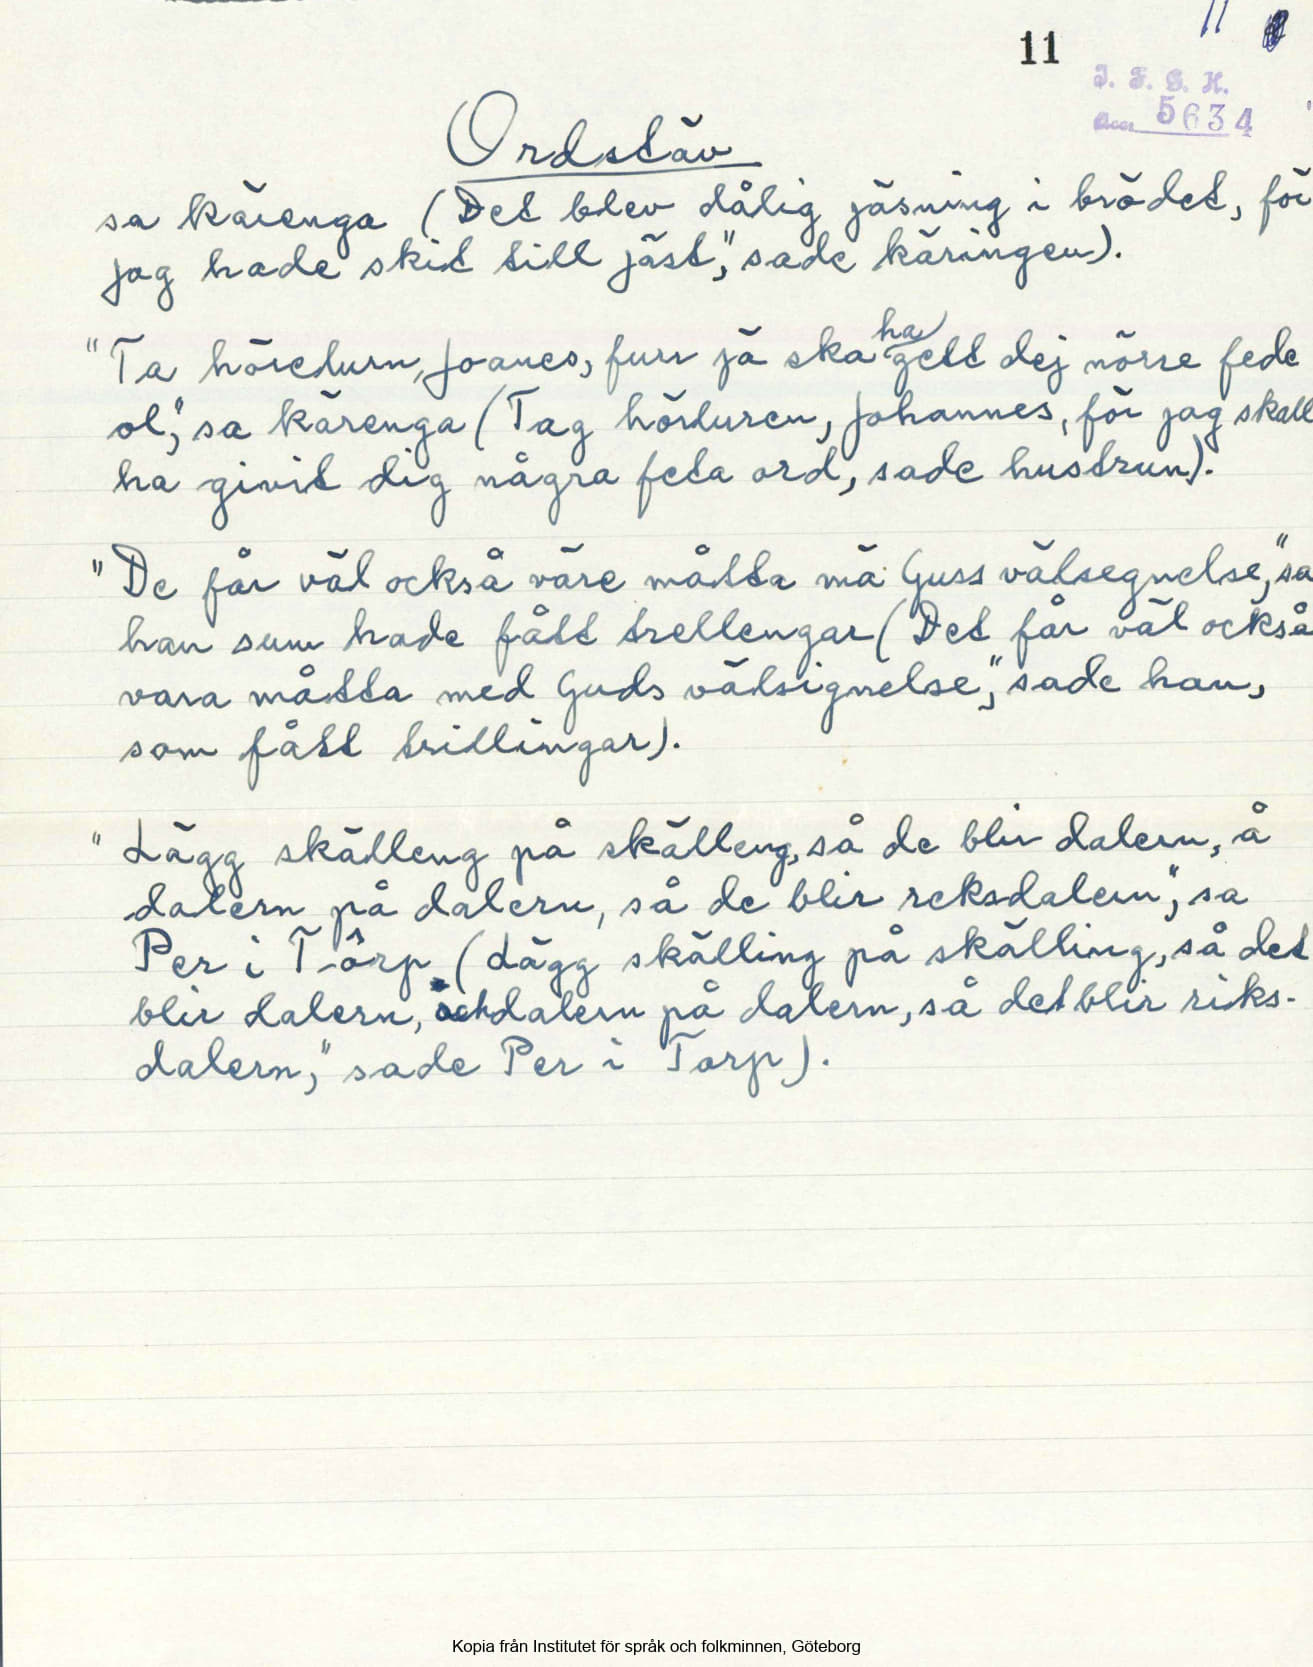 11
11
I. F. G. H.
Acc. 5634
Ordstäv
sa kärenga (Det blev dålig jäsning i brödet, för
jag hade skit till jäst," sade käringen).
"Ta hörelurn, Joanes, furr jä ska ha gett dej nörre fede
ol," sa kärenga (Tag hörluren, Johannes, för jag skall
ha givit dig några feta ord, sade hustrun).
"De får väl också väre måtta mä Guss välsegnelse," sa
han sum hade fått trellengar (Det får väl också
vara måtta med Guds välsignelse," sade han,
som fått trillingar).
"Lägg skälleng på skälleng, så de blir dalern, å
dalern på dalern, så de blir reksdalern," sa
Per i Törp (Lägg skälling på skälling, så det
blir dalern, och dalern på dalern, så det blir riks-
dalern," sade Per i Torp).
Kopia från Institutet för språk och folkminnen, Göteborg